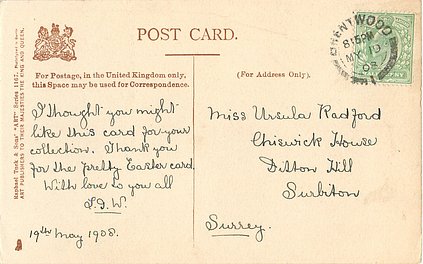 POST CARD.
For Postage, in the United Kingdom only,
this Space may be used for Correspondence.
(For Address Only).
Raphael Tuck & Sons' "ART" Series
ART PUBLISHERS TO THEIR MAJESTIES THE KING AND QUEEN.
BRENTWOOD
8.15PM
MY 19
08
I thought you might
like this card for your
collection. Thank you
for the pretty Easter card
With love to you all
19th May 1908.
Miss Ursula Radford
Chiswick House
Ditton Hill
Surbiton
Surrey.